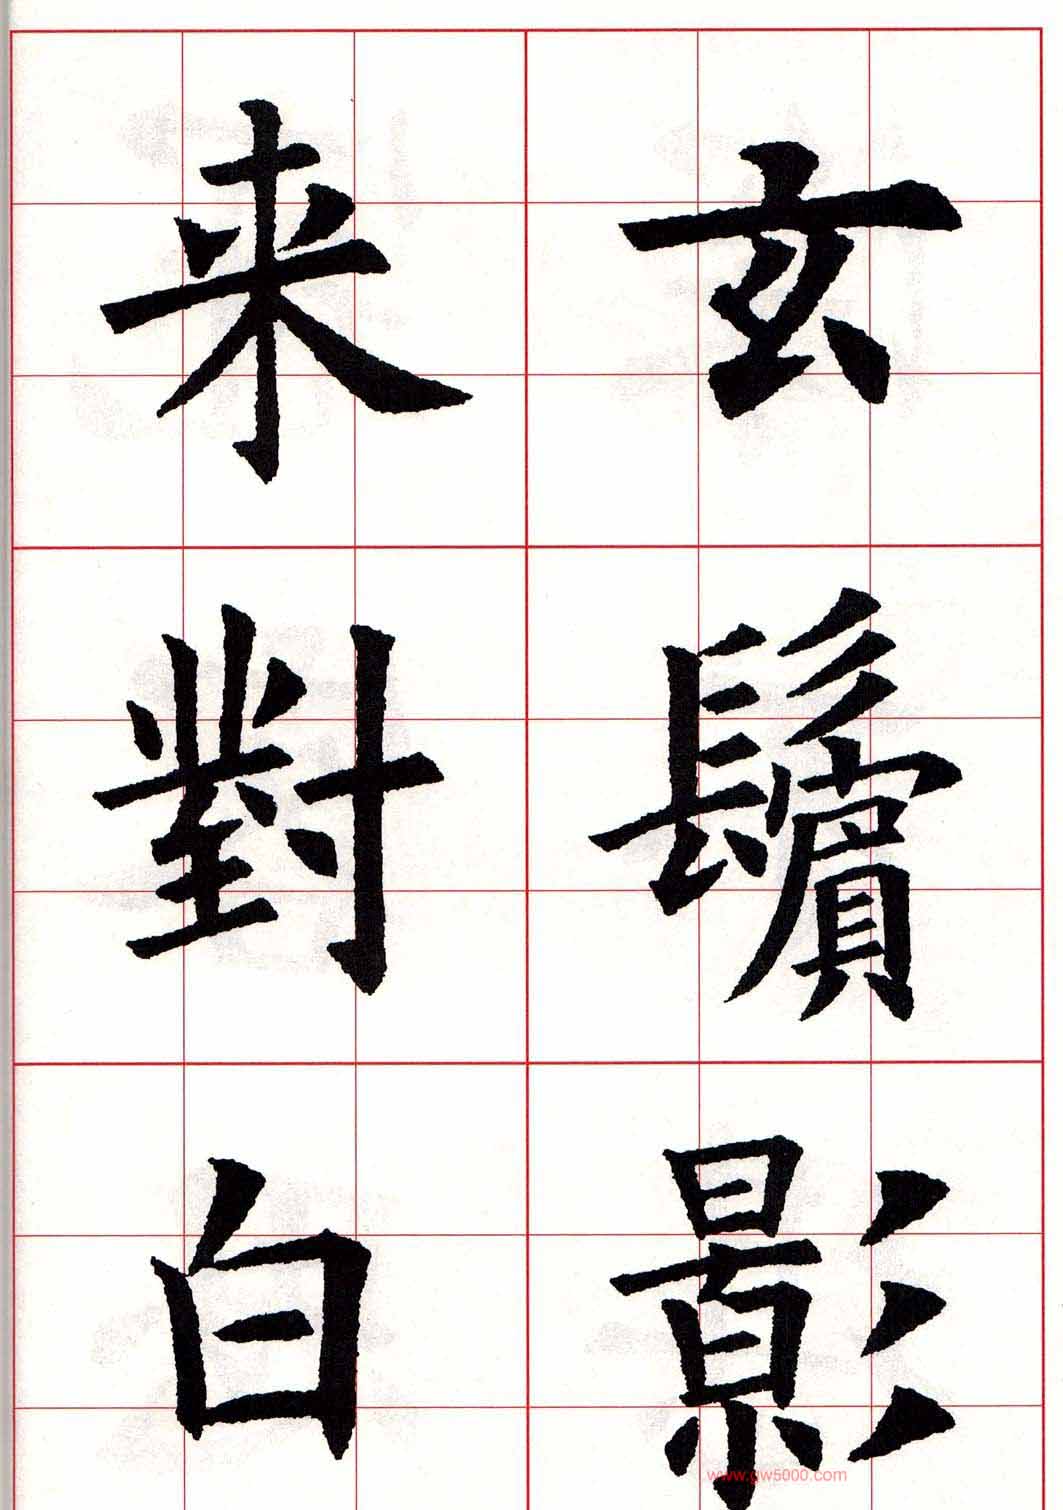 玄鬢影
来對白
www.gw5000.com